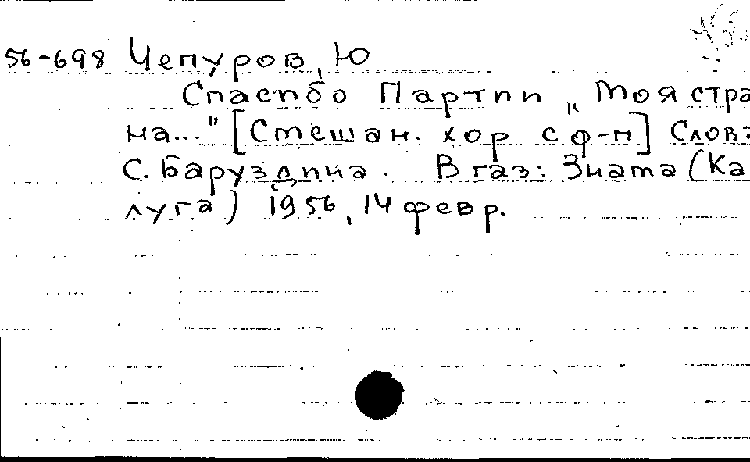 56-698 Чепуров, Ю
Спасибо Партии „Моя стра
на..." [Смешан. хор с ф-п] Слова
С. Баруздина. В газ: Знамя (Ка
луга) 1956, 14 февр.